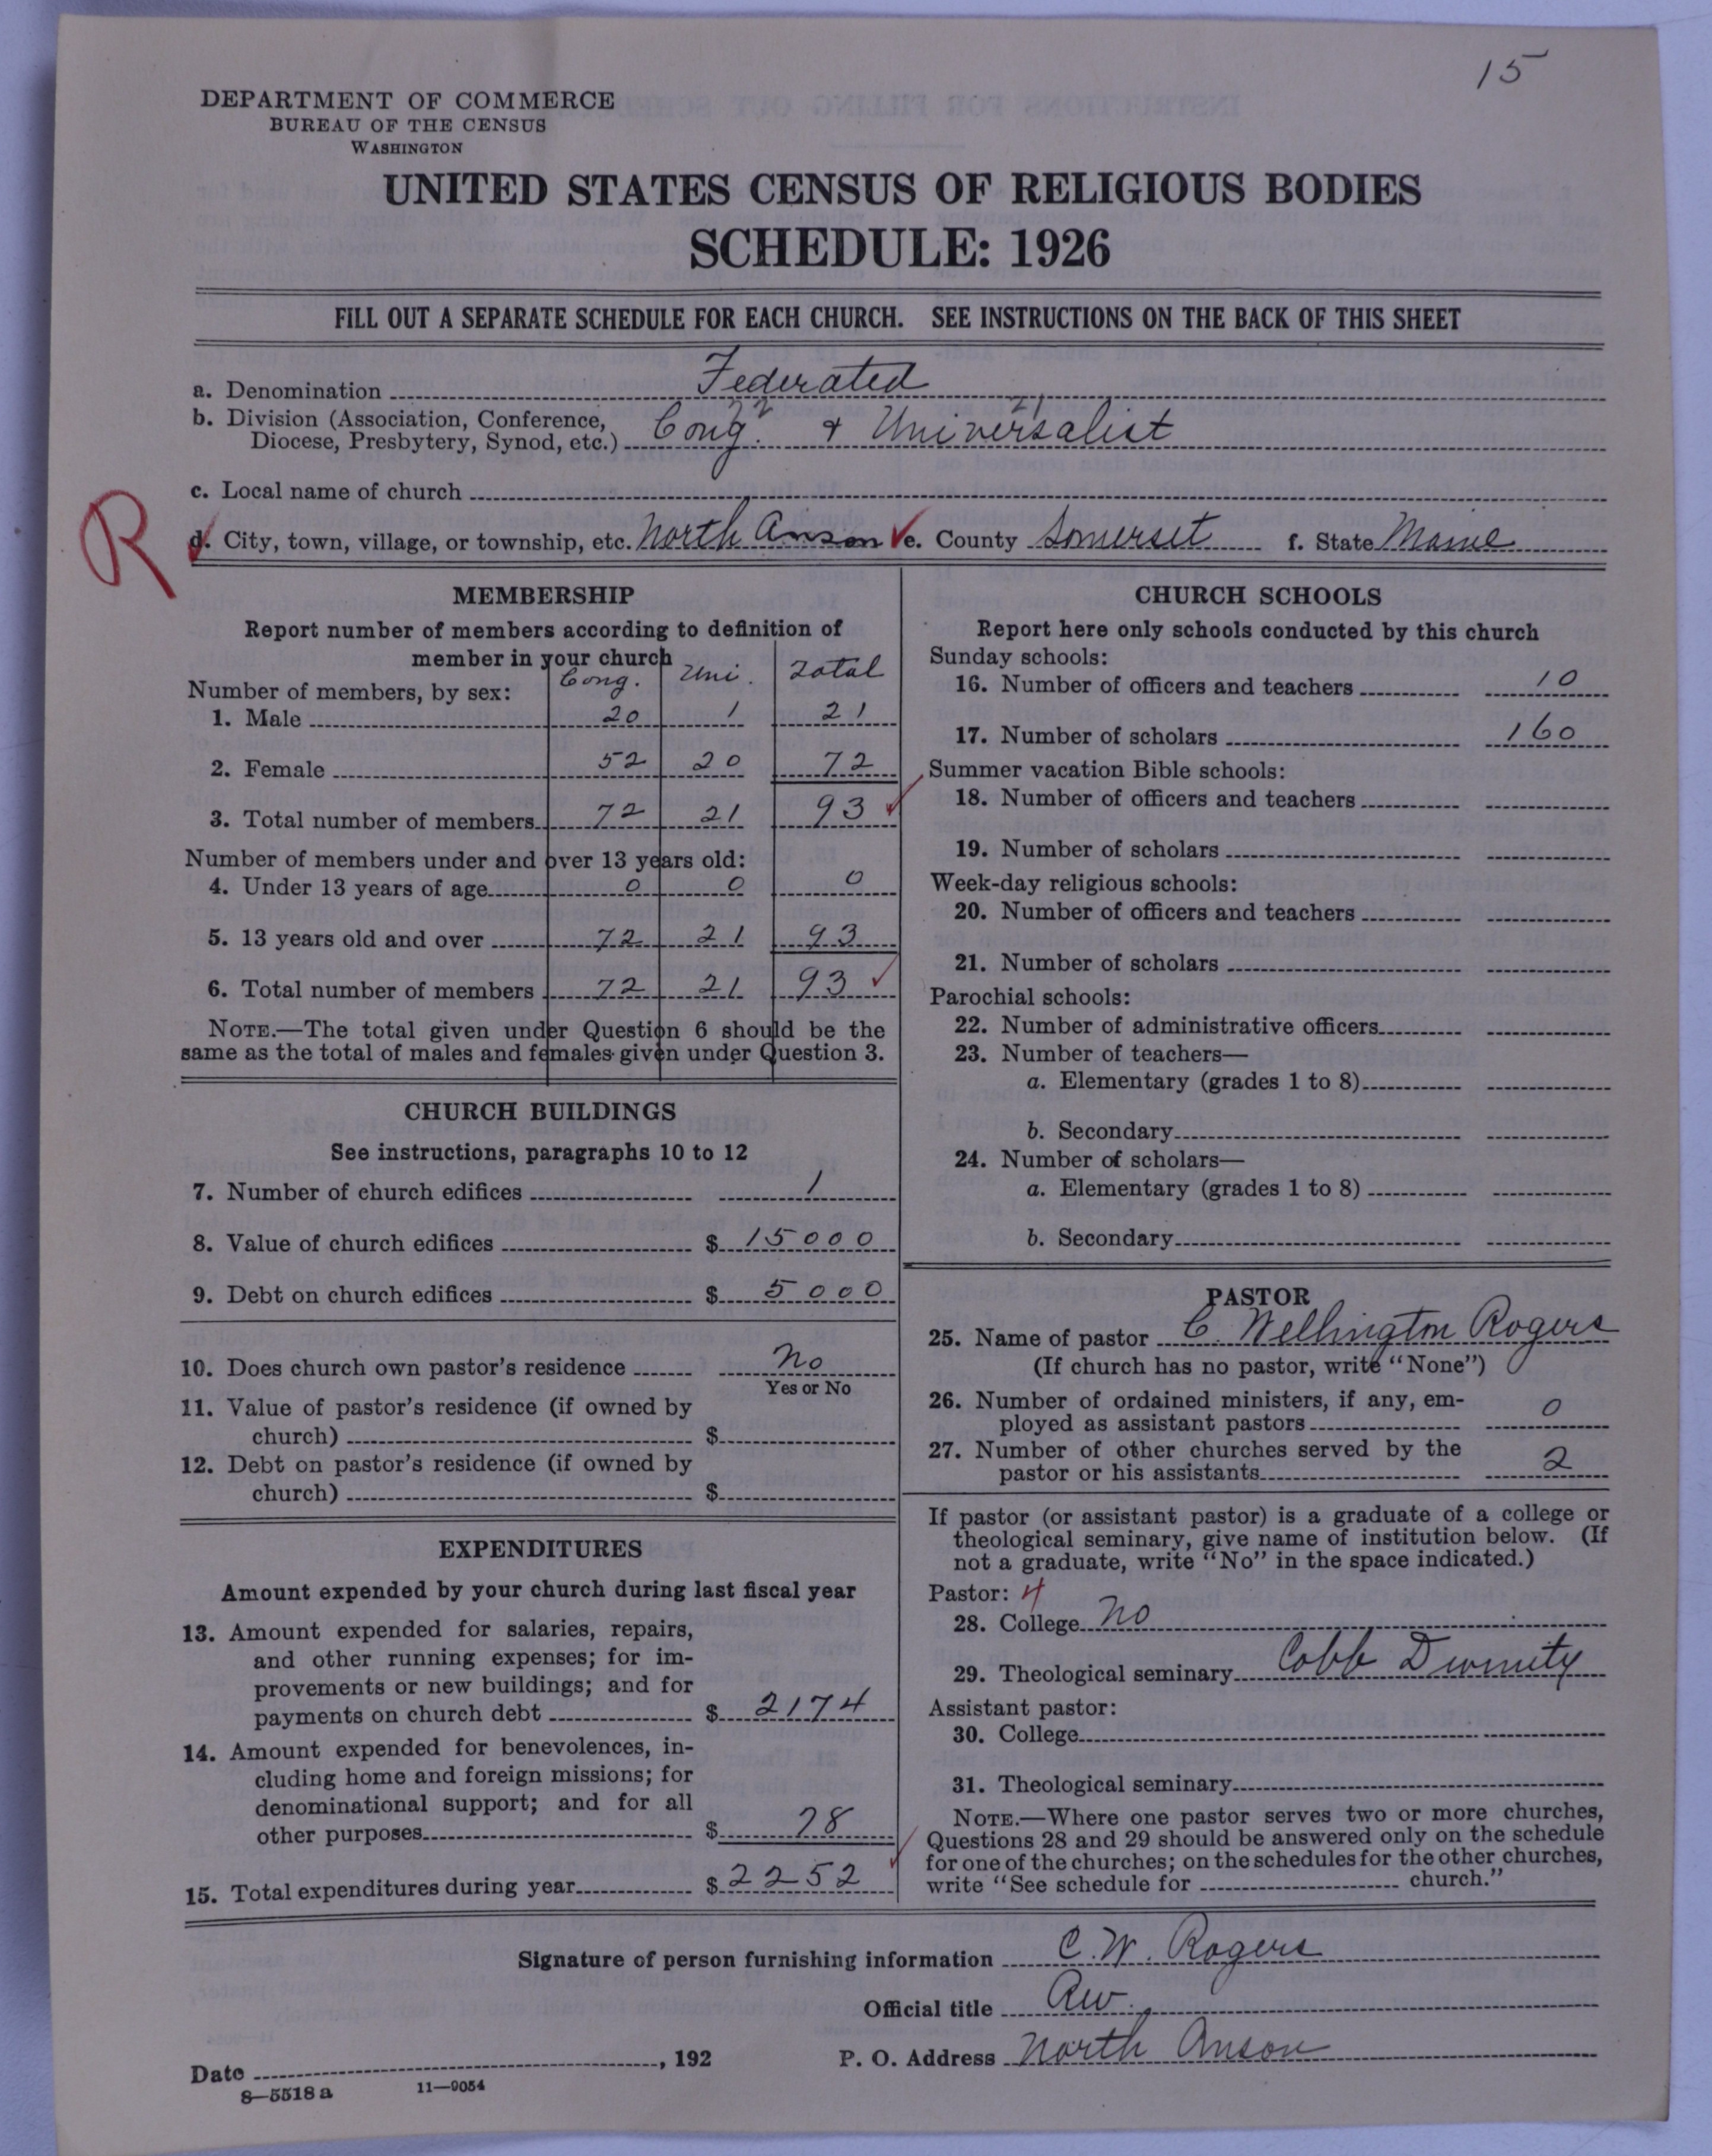 15
DEPARTMENT OF COMMERCE
BUREAU OF THE CENSUS
WASHINGTON
UNITED STATES CENSUS OF RELIGIOUS BODIES
SCHEDULE: 1926
FILL OUT A SEPARATE SCHEDULE FOR EACH CHURCH. SEE INSTRUCTIONS ON THE BACK OF THIS SHEET
a. Denomination Federated
72 21
b. Division (Association, Conference, Diocese, Presbytery, Synod, etc.) Cong. & Universalist
c. Local name of church
R
d. City, town, village, or township, etc. North Anson e. County Somerset f. State Maine
MEMBERSHIP
Report number of members according to definition of
member in your church
Cong. Uni. Total
Number of members, by sex:
1. Male 20 1 21
2. Female 52 20 72
3. Total number of members 72 21 93
Number of members under and over 13 years old:
4. Under 13 years of age 0 0 0
5. 13 years old and over 72 21 93
6. Total number of members 72 21 93
NOTE.—The total given under Question 6 should be the
same as the total of males and females given under Question 3.
CHURCH BUILDINGS
See instructions, paragraphs 10 to 12
7. Number of church edifices 1
8. Value of church edifices $ 15000
9. Debt on church edifices $ 5000
10. Does church own pastor's residence No
Yes or No
11. Value of pastor's residence (if owned by
church) $
12. Debt on pastor's residence (if owned by
church) $
EXPENDITURES
Amount expended by your church during last fiscal year
13. Amount expended for salaries, repairs,
and other running expenses; for im-
provements or new buildings; and for
payments on church debt $ 2174
14. Amount expended for benevolences, in-
cluding home and foreign missions; for
denominational support; and for all
other purposes $ 78
15. Total expenditures during year $ 2252
CHURCH SCHOOLS
Report here only schools conducted by this church
Sunday schools:
16. Number of officers and teachers 10
17. Number of scholars 160
Summer vacation Bible schools:
18. Number of officers and teachers
19. Number of scholars
Week-day religious schools:
20. Number of officers and teachers
21. Number of scholars
Parochial schools:
22. Number of administrative officers
23. Number of teachers—
a. Elementary (grades 1 to 8)
b. Secondary
24. Number of scholars—
a. Elementary (grades 1 to 8)
b. Secondary
PASTOR
25. Name of pastor C. Wellington Rogers
(If church has no pastor, write "None")
26. Number of ordained ministers, if any, em-
ployed as assistant pastors 0
27. Number of other churches served by the
pastor or his assistants 2
If pastor (or assistant pastor) is a graduate of a college or
theological seminary, give name of institution below. (If
not a graduate, write "No" in the space indicated.)
Pastor: 4
28. College No
29. Theological seminary Cobb Divinity
Assistant pastor:
30. College
31. Theological seminary
NOTE.—Where one pastor serves two or more churches,
Questions 28 and 29 should be answered only on the schedule
for one of the churches; on the schedules for the other churches,
write "See schedule for church."
Signature of person furnishing information C. W. Rogers
Official title Rev.
Date , 192 P. O. Address North Anson
8—5518 a 11—9054